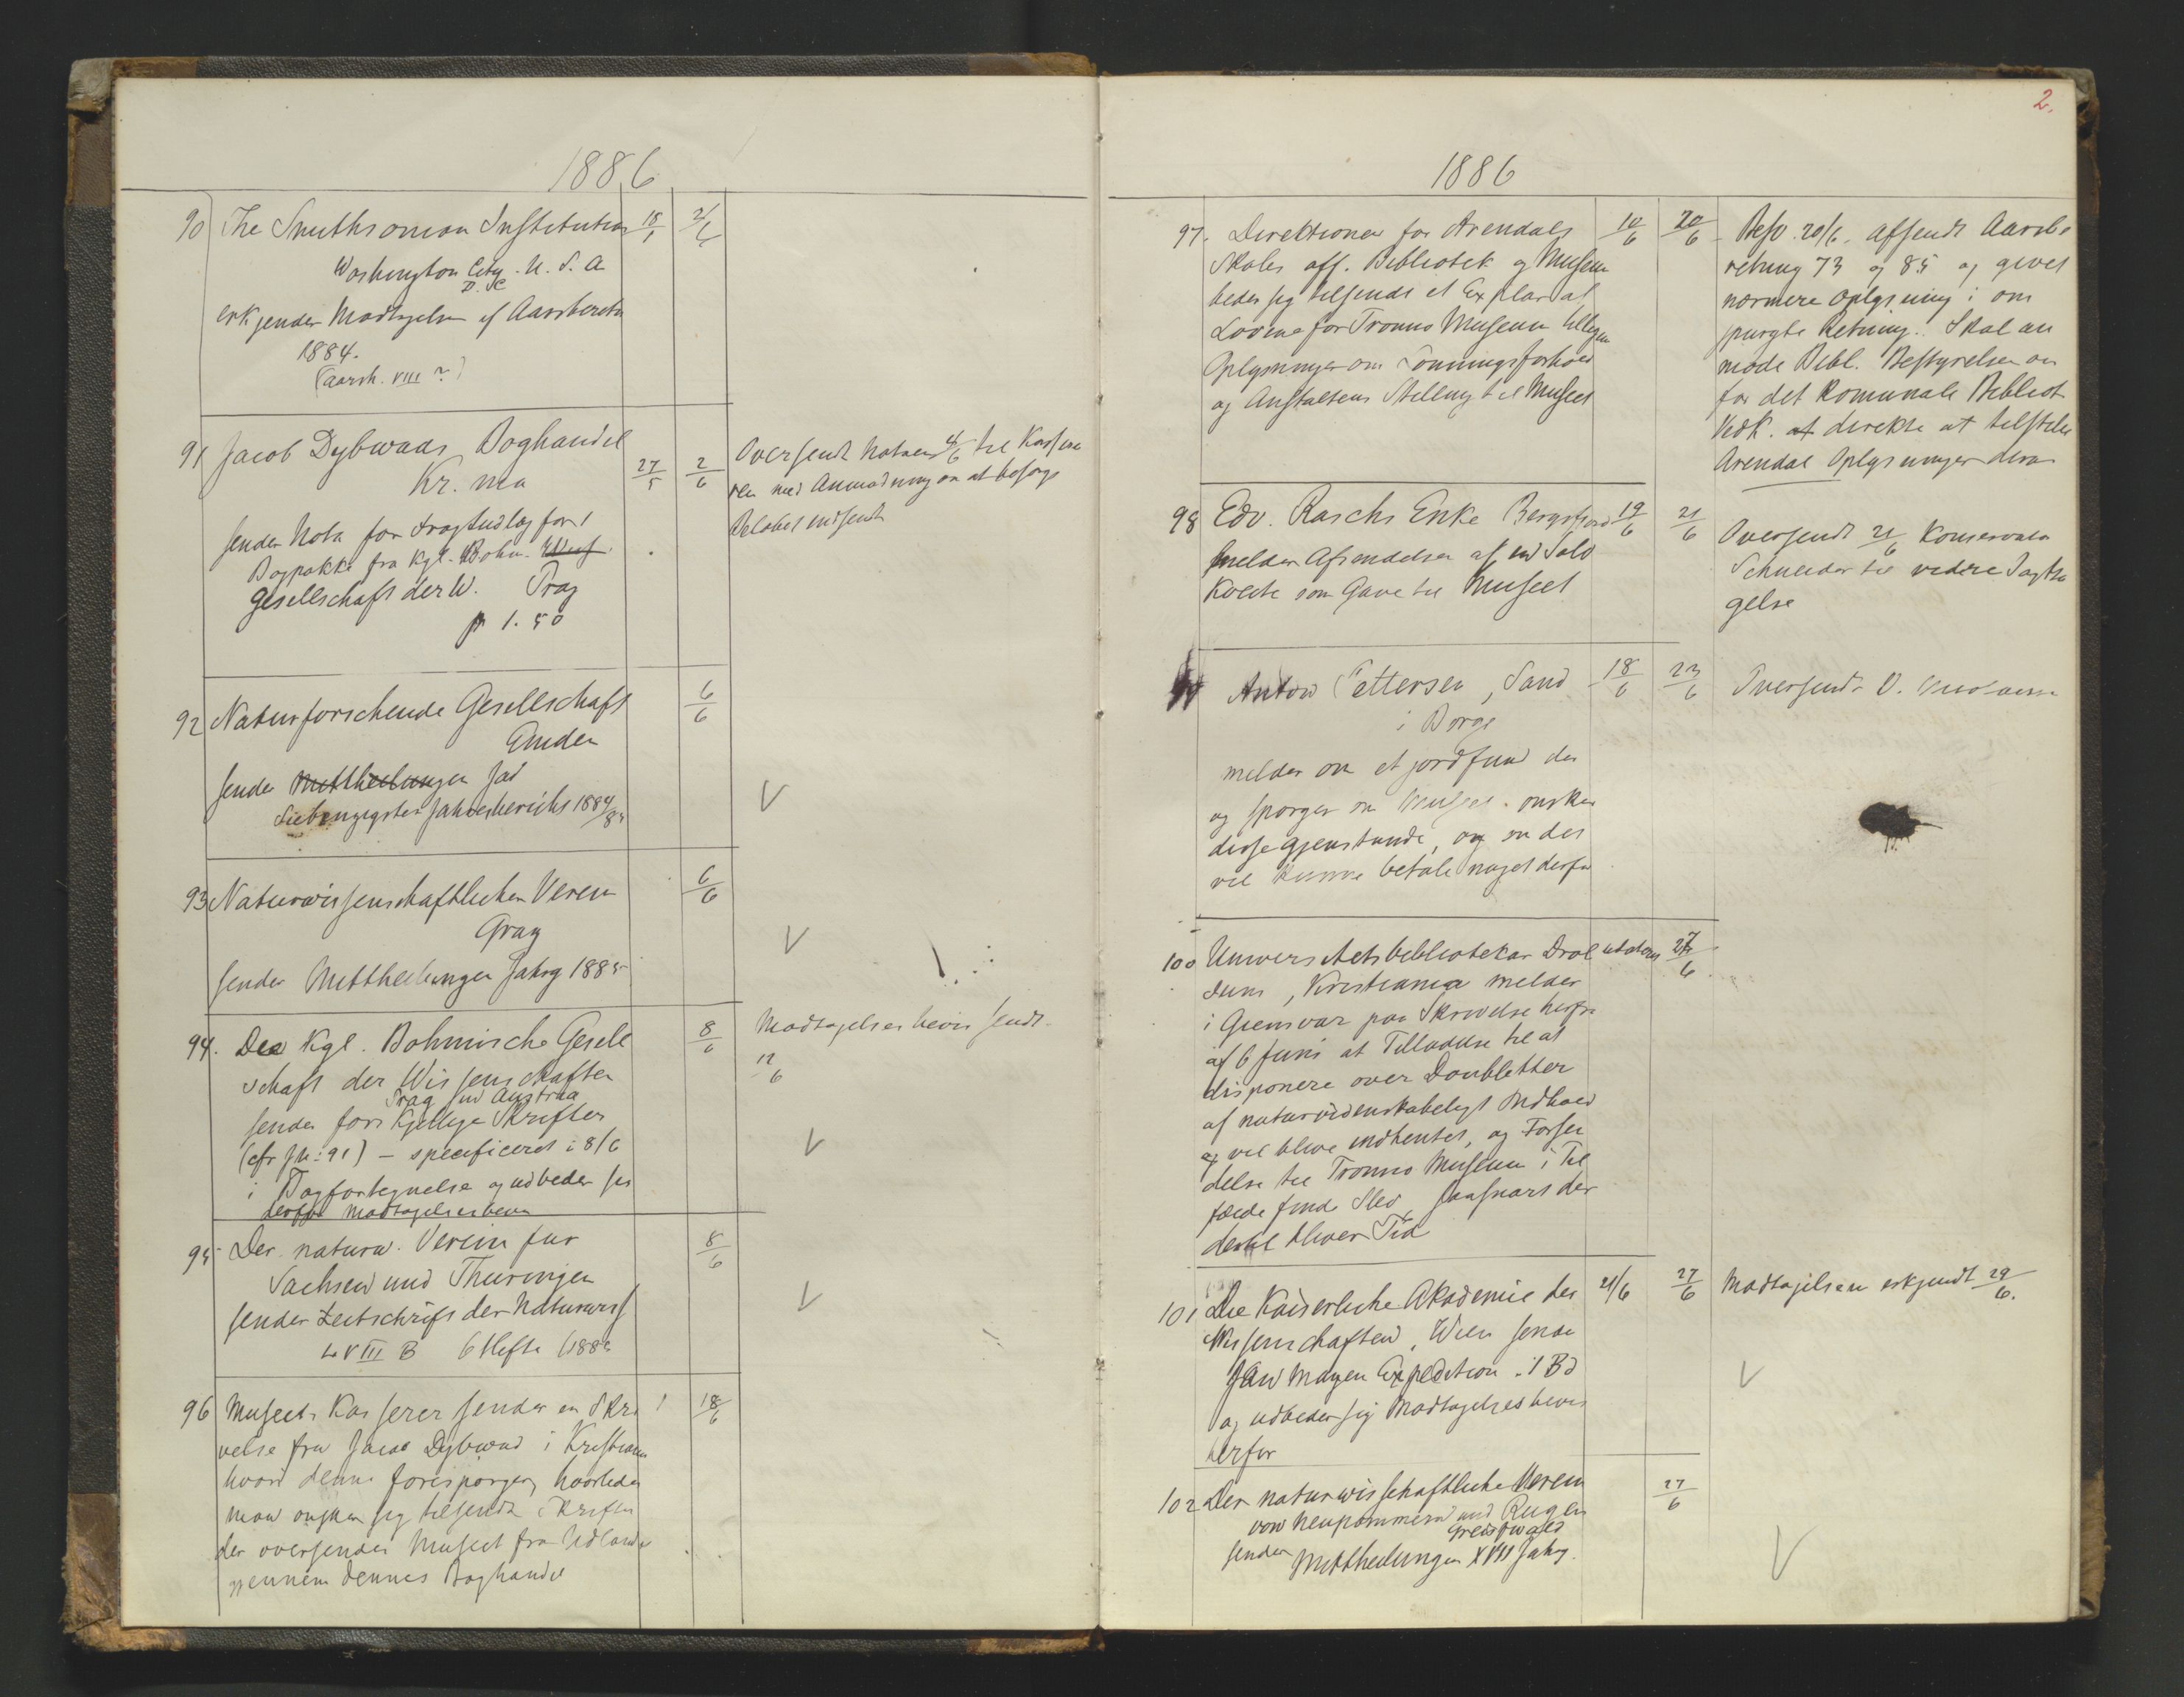 1886
90 The Smithsonian Institution 18/5 2/6
Washington City. U. S. A
D. C
erkjender Modtagelsen af Aarsberetn
1884.
(Aarsh. VIII ?)
91 Jacob Dybwads Boghandel
Kr. nia 27/5 2/6
sender Nota for Fragtudlæg for 1
Bogpakke fra Kgl. Böhm.
Gesellschaft der W. Prag
pr 1. 50
Oversendt Notaen 4/6 til Kassere
ren med Anmodning om at besørge
Beløbet indsendt
92 Naturforschende Gesellschaft 6/6
Emden
sender Mittheilungen sad
Siebenzigster Jahresbericht 1884/85
V
93 Naturwissenschaftlichen Verein 6/6
Graz
sender Mittheilungen Jahrg 1885
V
94. Der Kgl. Bohmische Gesell 8/6
schaft der Wissenschaften
Prag in Austria
sender forskjellige Skrifter
(cfr Jn: 91) - specificeret i 8/6
i Bogfortegnelse og udbeder sig
derfor Modtagelsesbevis
Modtagelsesbevis sendt
12/6
V
95 Der naturw. Verein fur 8/6
Sachsen und Thuringen
sender Zeitschrift der Naturwiss
LVIII B 6 Hefte 1885
V
96 Museets Kasserer sender en Skri 18/6
velse fra Jacob Dybwad i Kristiania
hvori denne forespørger, hvorledes
man ønsker sig tilsendt Skrifter
der oversendes Museet fra Udlandet
gjennem dennes Boghandel
2.
1886
97. Direktionen for Arendals 10/6 20/6
Skoles off. Bibliotek og Museum
beder sig tilsendt et Explar af
Lovene for Tromsø Museum tillige
Oplysninger om Lønningsforhold
og Anstaltens Stilling til Museet
Besv. 20/6. afsendt Aarsbe
retning 73 og 85 og givet
nærmere Oplysning i om
spurgte Retning. Skal an
mode Bibl. Bestyrelsen om
for det Komunale Bibliot
Vedk. at direkte at tilstille
Arendal Oplysninger derom
98 Edv. Raschs Enke Bergsfjord 19/6 21/6
melder Afsendelsen af en Sølv
Kveite som Gave til Museet
Oversendt 21/6 Konservator
Schneider til videre Iagtta
gelse
Anton Pettersen, Sand 18/6 23/6
i Borge
melder om et jordfund der
og spørger om Museet ønsker
disse gjenstande, og om det
vil kunne betale noget derfor
Oversendt O.
100 Universitetsbibliotekar Drol udateret 27/6
sum, Kristiania melder
i Giensvar paa Skrivelse herfra
af 6 Juni at Tilladelse til at
disponere over Doubletter
af naturvidenskabeligt Indhold
vil blive indhentet, og Forsen
delse til Tromsø Museum i Til
fælde finde Sted, saasnart der
dertil bliver Tid
101 Die Kaiserliche Akademie der 21/6 27/6
Wissenschaften, Wien sender
Jan Mayen Expedition . 1 Bd
og udbeder sig Modtagelsesbevis
herfor
Modtagelsen erkjendt 29/6.
V
102 Der naturwissenschaftliche Verein 27/6
von Neupommern und Rugen
Greifswald
sender Mittheilungen XVII Jahrg.
V